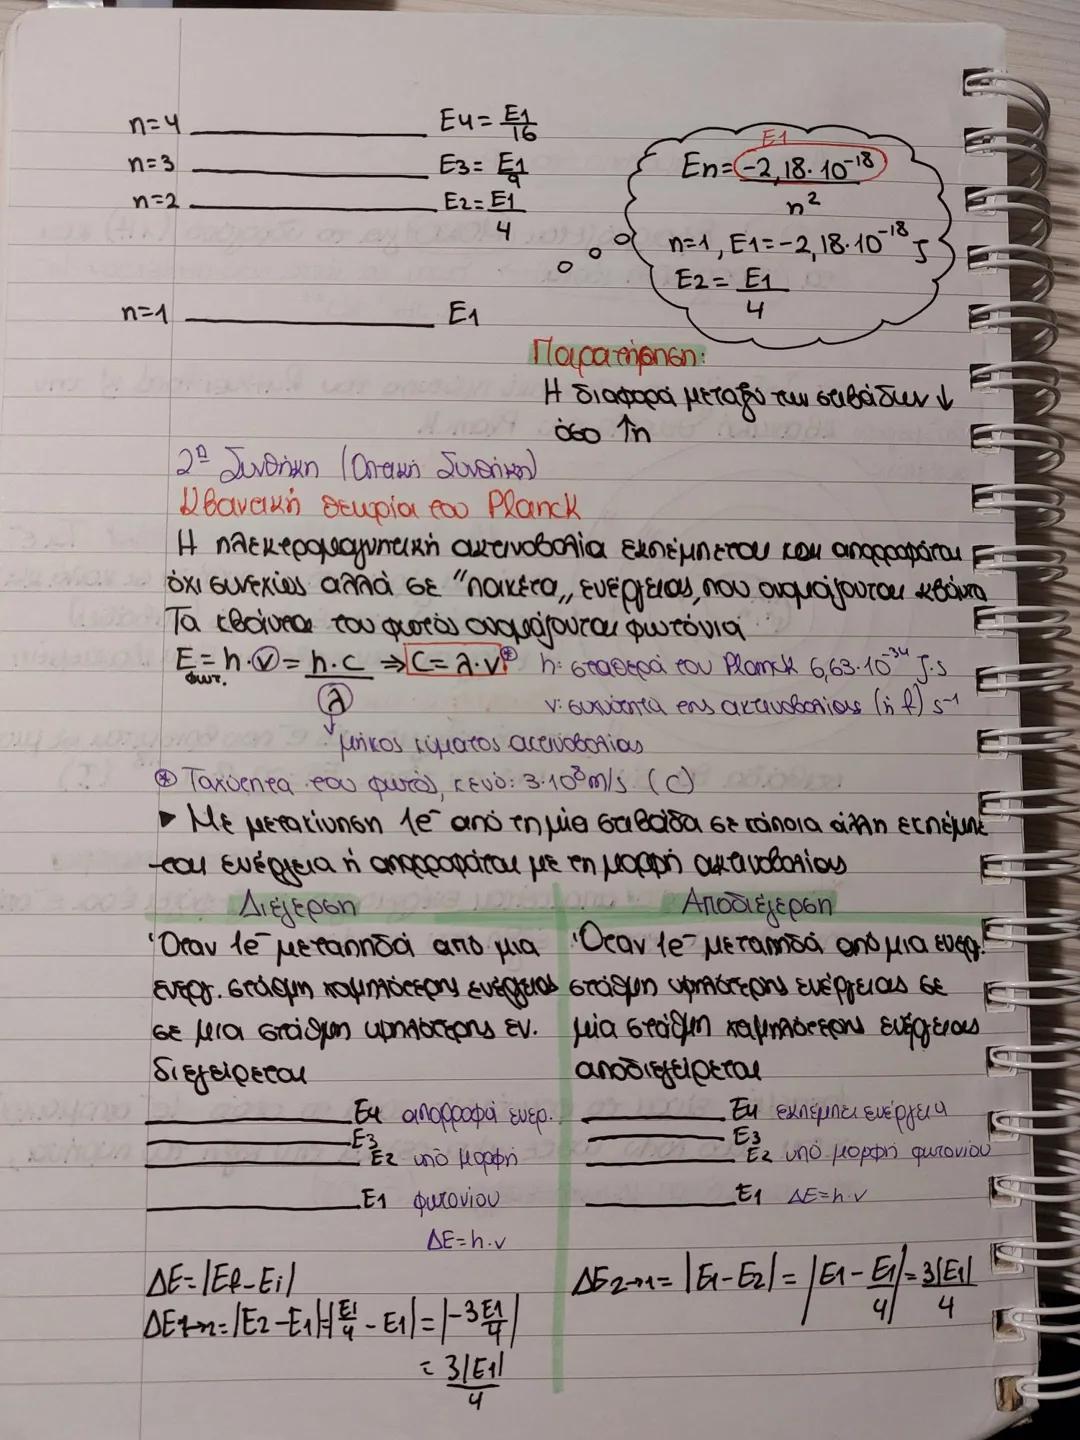 n=4 E4= E1/16
n=3 E3= E1/9
n=2 E2= E1/4
n=1 E1
E1
En= -2,18·10⁻¹⁸/n²
n=1, E1=-2,18·10⁻¹⁸ J
E2= E1/4
Παρατήρηση:
Η διαφορά μεταξύ των στιβάδων ↓
όσο ↑n
2η Συνθήκη (Οπτική Συνθήκη)
Κβαντική θεωρία του Planck
Η ηλεκτρομαγνητική ακτινοβολία εκπέμπεται και απορροφάται
όχι συνεχώς αλλά σε "πακέτα,, ενέργειας, που ονομάζονται κβάντα
Τα κβάντα του φωτός ονομάζονται φωτόνια
Eφωτ. = h·ν = h·c/λ ⇒ C=λ·ν⊛ h: σταθερά του Planck 6,63·10⁻³⁴ J·s
ν: συχνότητα της ακτινοβολίας (ή f) s⁻¹
μήκος κύματος ακτινοβολίας
⊛ Ταχύτητα του φωτός, κενό: 3·10⁸m/s (C)
▸ Με μετακίνηση 1e⁻ από τη μία στιβάδα σε κάποια άλλη εκπέμπε
-ται ενέργεια ή απορροφάται με τη μορφή ακτινοβολίας
Διέγερση
Όταν 1e⁻ μεταπηδά από μια
ενεργ. στάθμη χαμηλότερης ενέργειας
σε μια στάθμη υψηλότερης εν.
διεγείρεται
E4 απορροφά ενερ.
E3
E2 υπό μορφή
E1 φωτονίου
ΔE=h·ν
ΔE=|Ef-Ei|
ΔE1→2=|E2-E1|=|E1/4 - E1|=|-3E1/4|
= 3|E1|/4
Αποδιέγερση
Όταν 1e⁻ μεταπηδά από μια ενεργ.
στάθμη υψηλότερης ενέργειας σε
μία στάθμη χαμηλότερης ενέργειας
αποδιεγείρεται
E4 εκπέμπει ενέργεια
E3
E2 υπό μορφή φωτονίου
E1 ΔE=h·ν
ΔE2→1= |E1-E2|= |E1- E1/4|= 3|E1|/4